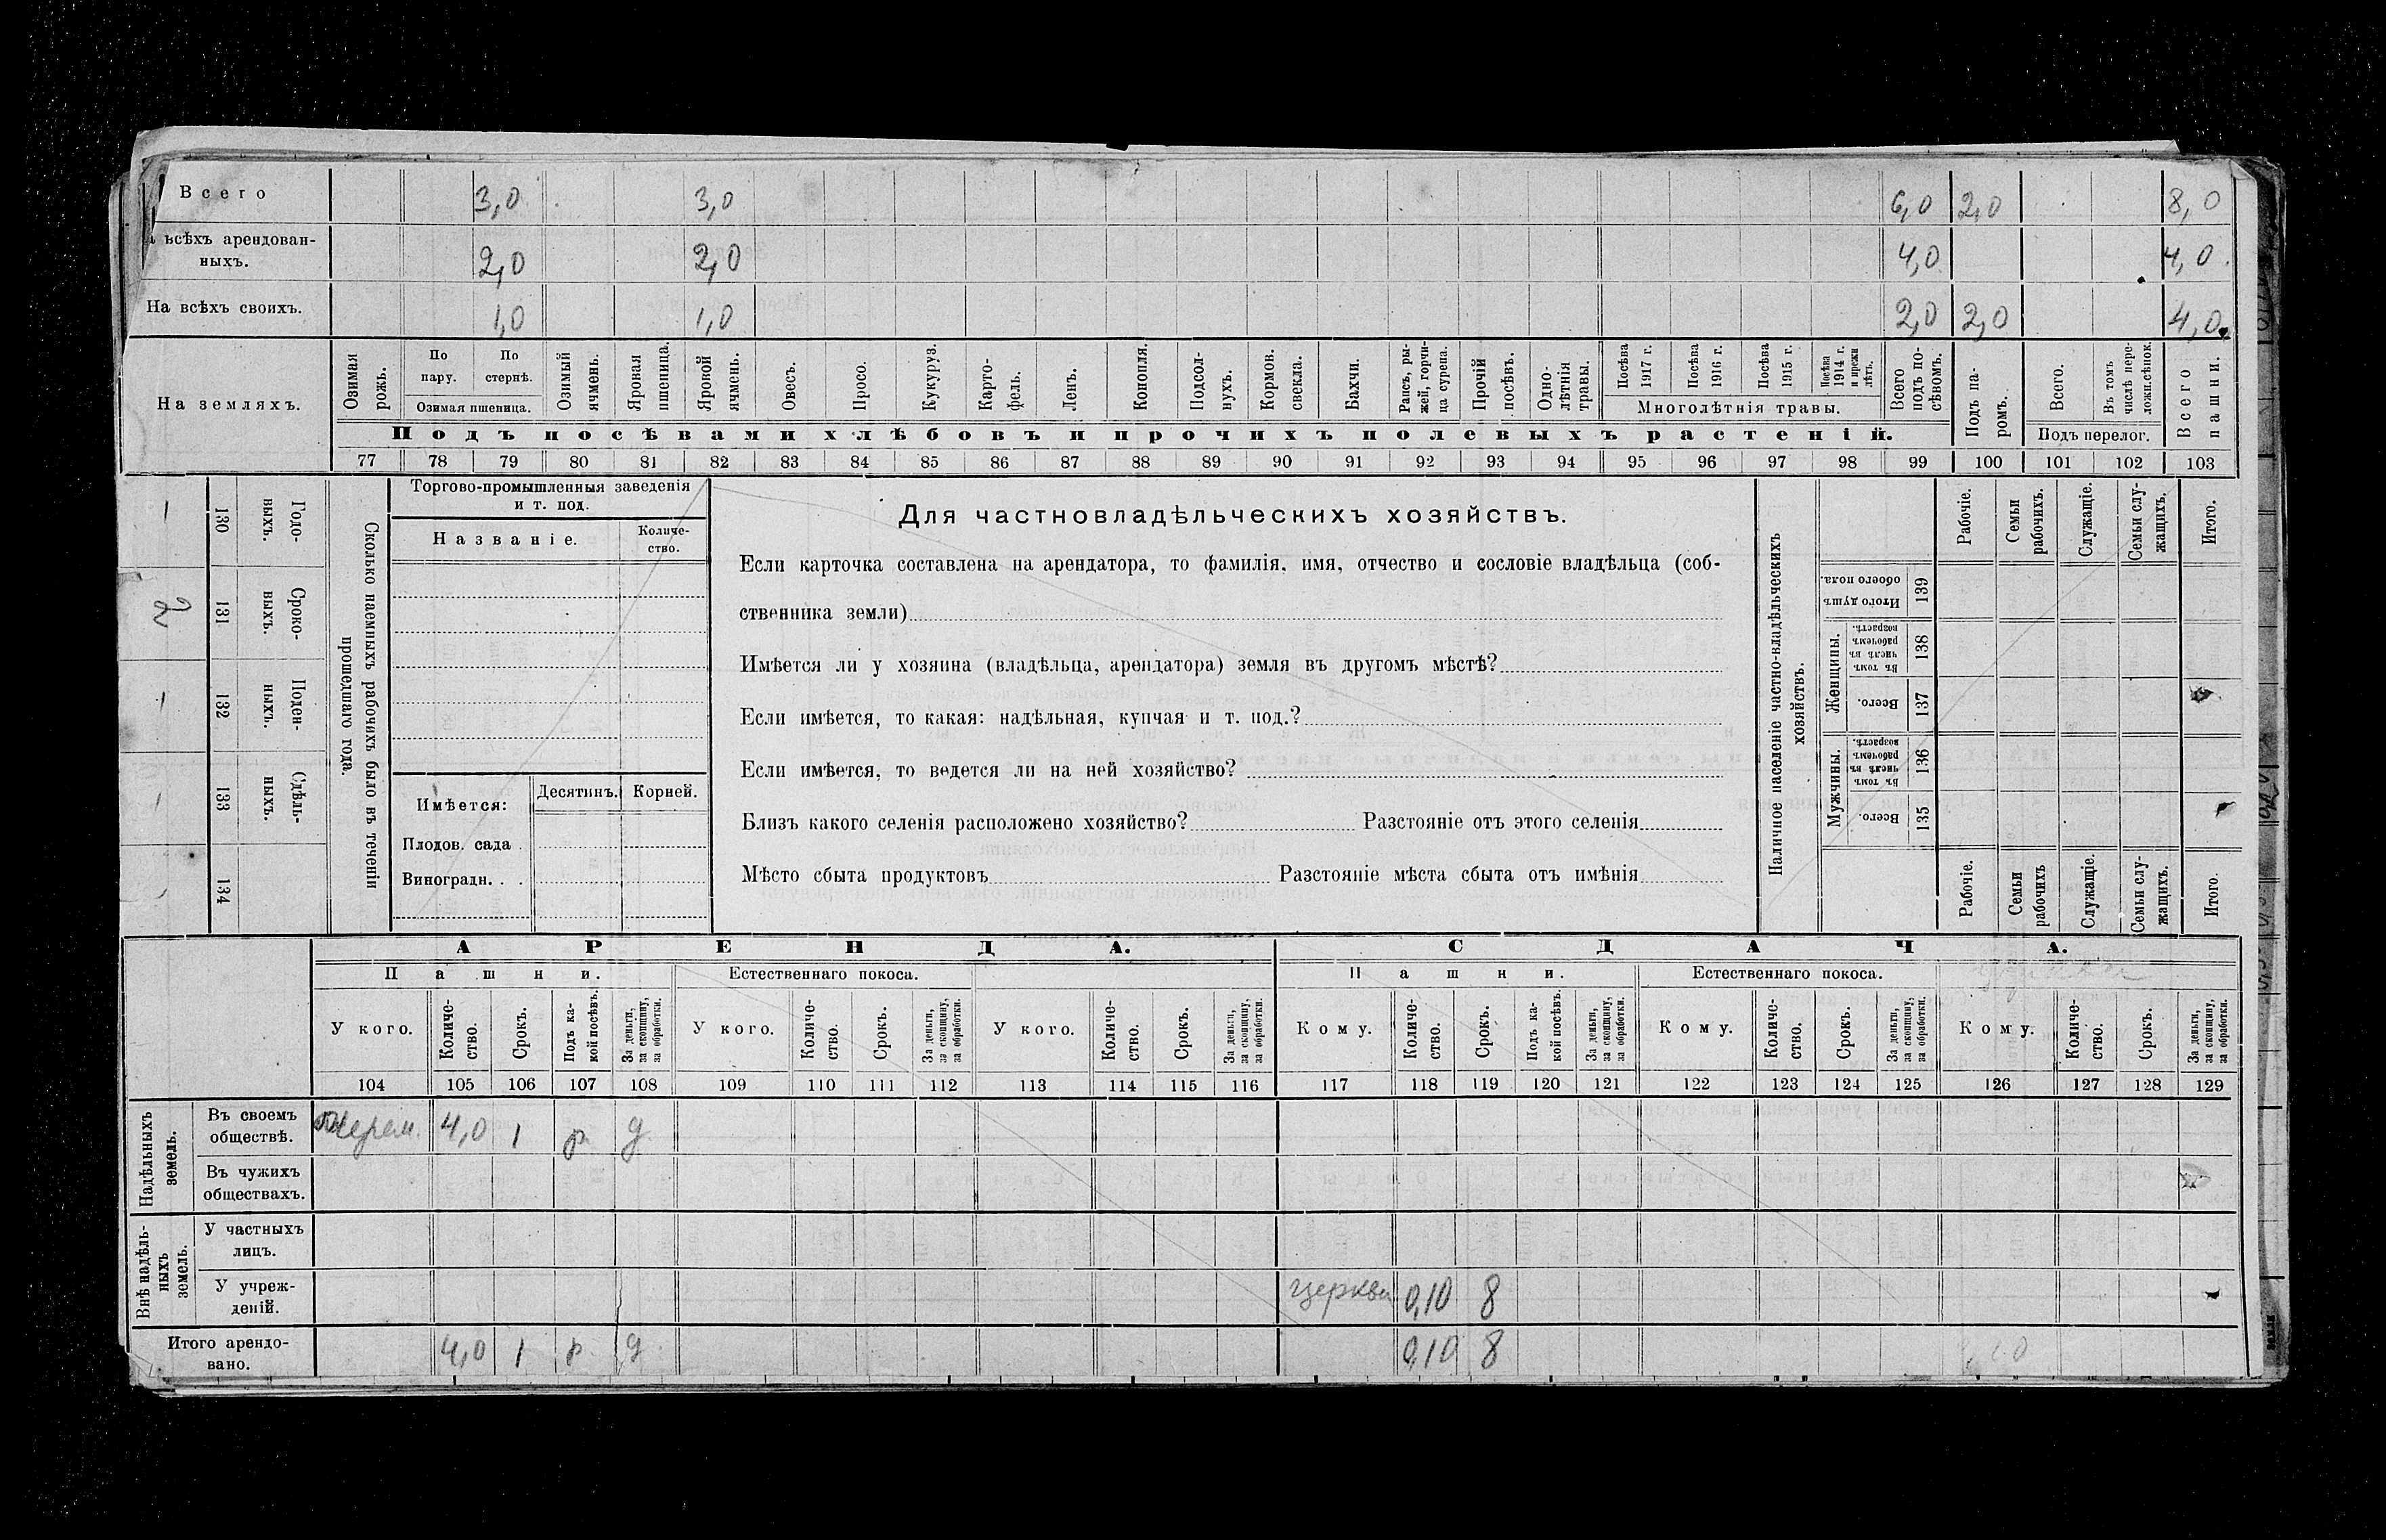 Всего 3,0 3,0 6,0 2,0 8,0
всѣхъ арендован-
ныхъ. 2,0 2,0 4,0 4,0
На всѣхъ своихъ. 1,0 1,0 2,0 2,0 4,0
На земляхъ.
Озимая рожь.
По пару.
По стернѣ.
Озимая пшеница.
Озимый ячмень.
Яровая пшеница.
Яровой ячмень.
Овесъ.
Просо.
Кукуруз.
Карто-
фель.
Ленъ.
Конопля.
Подсол-
нухъ.
Кормов. свекла.
Бахчи.
Рапсъ, ры-
жей, горчи-
ца сурепа.
Прочій посѣвъ.
Одно-
лѣтнія травы.
Посѣва 1917 г.
Посѣва 1916 г.
Посѣва 1915 г.
Посѣва 1914 г. и прежн лѣтъ.
Многолѣтнія травы.
Всего подъ по-
сѣвомъ.
Подъ па-
ромъ.
Всего.
Въ томъ числѣ пере-
ложн.сѣнок.
Подъ перелог.
Всего пашни.
Подъ посѣвами хлѣбовъ и прочихъ полевыхъ растеній.
77 78 79 80 81 82 83 84 85 86 87 88 89 90 91 92 93 94 95 96 97 98 99 100 101 102 103
130 Годо-
выхъ.
2 131 Сроко-
ныхъ.
132 Поден-
ныхъ.
133 Сдѣль-
ныхъ.
134
Сколько наемныхъ рабочихъ было въ теченіи
прошедшаго года.
Торгово-промышленныя заведенія
и т. под.
Названіе.
Количе-
ство.
Имѣется:
Десятин. Корней.
Плодов. сада .
Виноградн. . .
Для частновладѣльческихъ хозяйствъ.
Если карточка составлена на арендатора, то фамилія, имя, отчество и сословіе владѣльца (соб-
ственника земли)
Имѣется ли у хозяина (владѣльца, арендатора) земля въ другомъ мѣстѣ?
Если имѣется, то какая: надѣльная, купчая и т. под.?
Если имѣется, то ведется ли на ней хозяйство?
Близъ какого селенія расположено хозяйство? Разстояніе отъ этого селенія
Мѣсто сбыта продуктовъ Разстояніе мѣста сбыта отъ имѣнія
Наличное населеніе частно-владѣльческихъ
хозяйствъ.
Рабочіе.
Семьи рабочихъ.
Служащіе.
Семьи слу-
жащихъ.
Итого.
Итого душъ обоего пола. 139
Женщины.
Въ томъ числѣ въ рабочемъ возрастѣ. 138
Всего. 137
Мужчины.
Въ томъ числѣ въ рабочемъ возрастѣ. 136
Всего. 135
Рабочіе.
Семьи рабочихъ
Служащіе.
Семьи слу-
жащихъ.
Итого.
АРЕНДА. СДАЧА.
Пашни. Естественнаго покоса. Пашни. Естественнаго покоса.
У кого.
Количе-
ство.
Срокъ.
Подъ ка-
кой посѣвъ.
За деньги, за скопщину, за обработки.
У кого.
Количе-
ство.
Срокъ.
За деньги, за скопщину, за обработки.
У кого.
Количе-
ство.
Срокъ.
За деньги, за скопщину, за обработки.
Кому.
Количе-
ство.
Срокъ.
Подъ ка-
кой посѣвъ.
За деньги, за скопщину, за обработки.
Кому.
Количе-
ство.
Срокъ.
За деньги, за скопщину, за обработки.
Кому.
Количе-
ство.
Срокъ.
За деньги, за скопщину, за обработки.
104 105 106 107 108 109 110 111 112 113 114 115 116 117 118 119 120 121 122 123 124 125 126 127 128 129
Надѣльныхъ земель.
Въ своемъ
обществѣ. 4,0 1 р. д
Въ чужихъ
обществахъ.
Внѣ надѣль-
ныхъ земель.
У частныхъ
лицъ.
У учреж-
деній. церкви 0,10 8
Итого арендо-
вано. 4,0 1 р. д 0,10 8